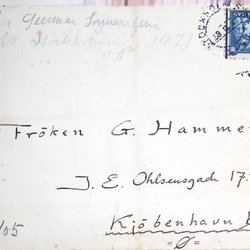 Gunnar
Stockholm 1921
Fröken G. Hamme
J. E. Ohlsensgade 17.
Kjöbenhavn
Ø